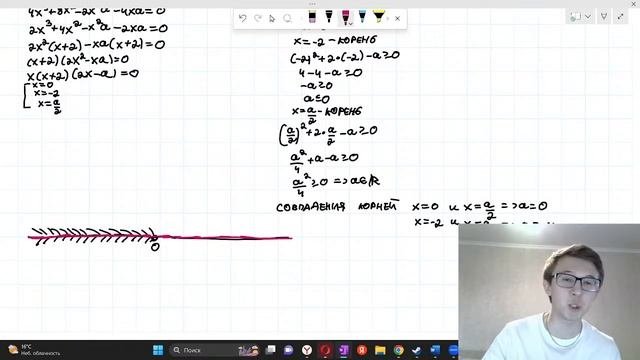 2x³+4x²-x²a-2xa=0
2x²(x+2)-xa(x+2)=0
(x+2)(2x²-xa)=0
x(x+2)(2x-a)=0
x=0
x=-2
x=a/2
0
x=-2 - КОРЕНЬ
(-2)²+2·(-2)-a≥0
4-4-a≥0
-a≥0
a≤0
x=a/2 - КОРЕНЬ
(a/2)²+2·a/2-a≥0
a²/4+a-a≥0
a²/4≥0 => a∈R
СОВПАДЕНИЯ КОРНЕЙ x=0 и x=a/2 => a=0
x=-2 и
16°C
Неб. облачность
Поиск